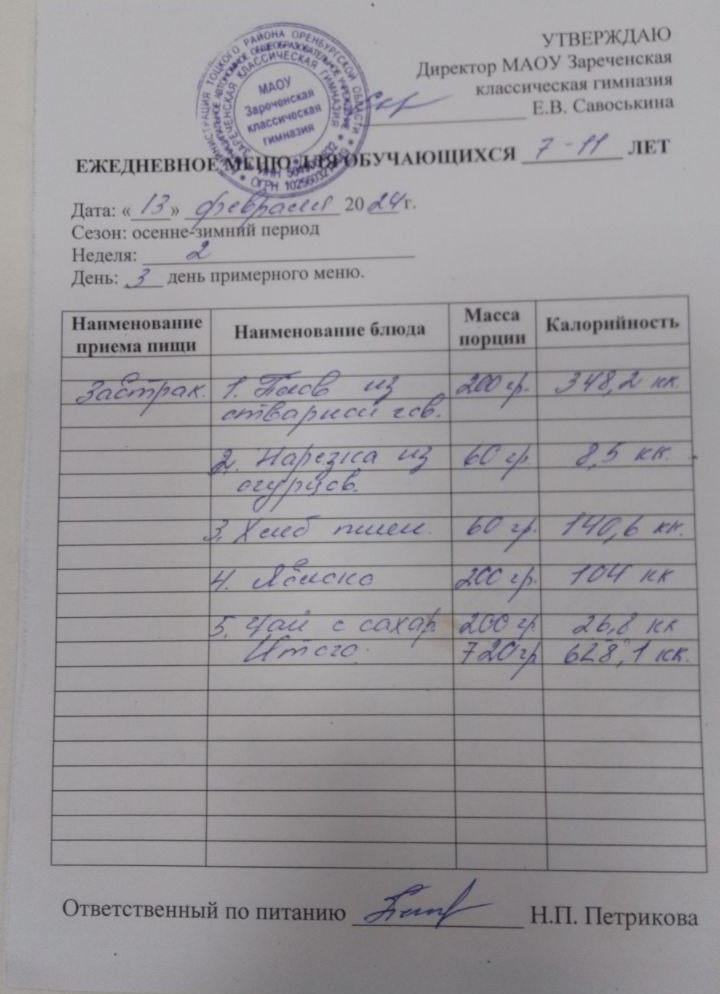 УТВЕРЖДАЮ
Директор МАОУ Зареченская
классическая гимназия
Е.В. Савоськина
МАОУ
Зареченская
классическая
гимназия
ЕЖЕДНЕВНОЕ МЕНЮ ДЛЯ ОБУЧАЮЩИХСЯ 7-11 ЛЕТ
Дата: «13» февраля 2024 г.
Сезон: осенне-зимний период
Неделя: 2
День: 3 день примерного меню.
Наименование приема пищи Наименование блюда Масса порции Калорийность
Завтрак. 1. Плов из 200 гр. 348,2 кк.
отварной гов.
2. Нарезка из 60 гр 8,5 кк.
огурцов.
3. Хлеб пшен. 60 гр. 140,6 кк.
4. Яблоко 200 гр. 104 кк
5. Чай с сахар. 200 гр. 26,8 кк
Итого. 720 гр 628,1 кк.
Ответственный по питанию Н.П. Петрикова